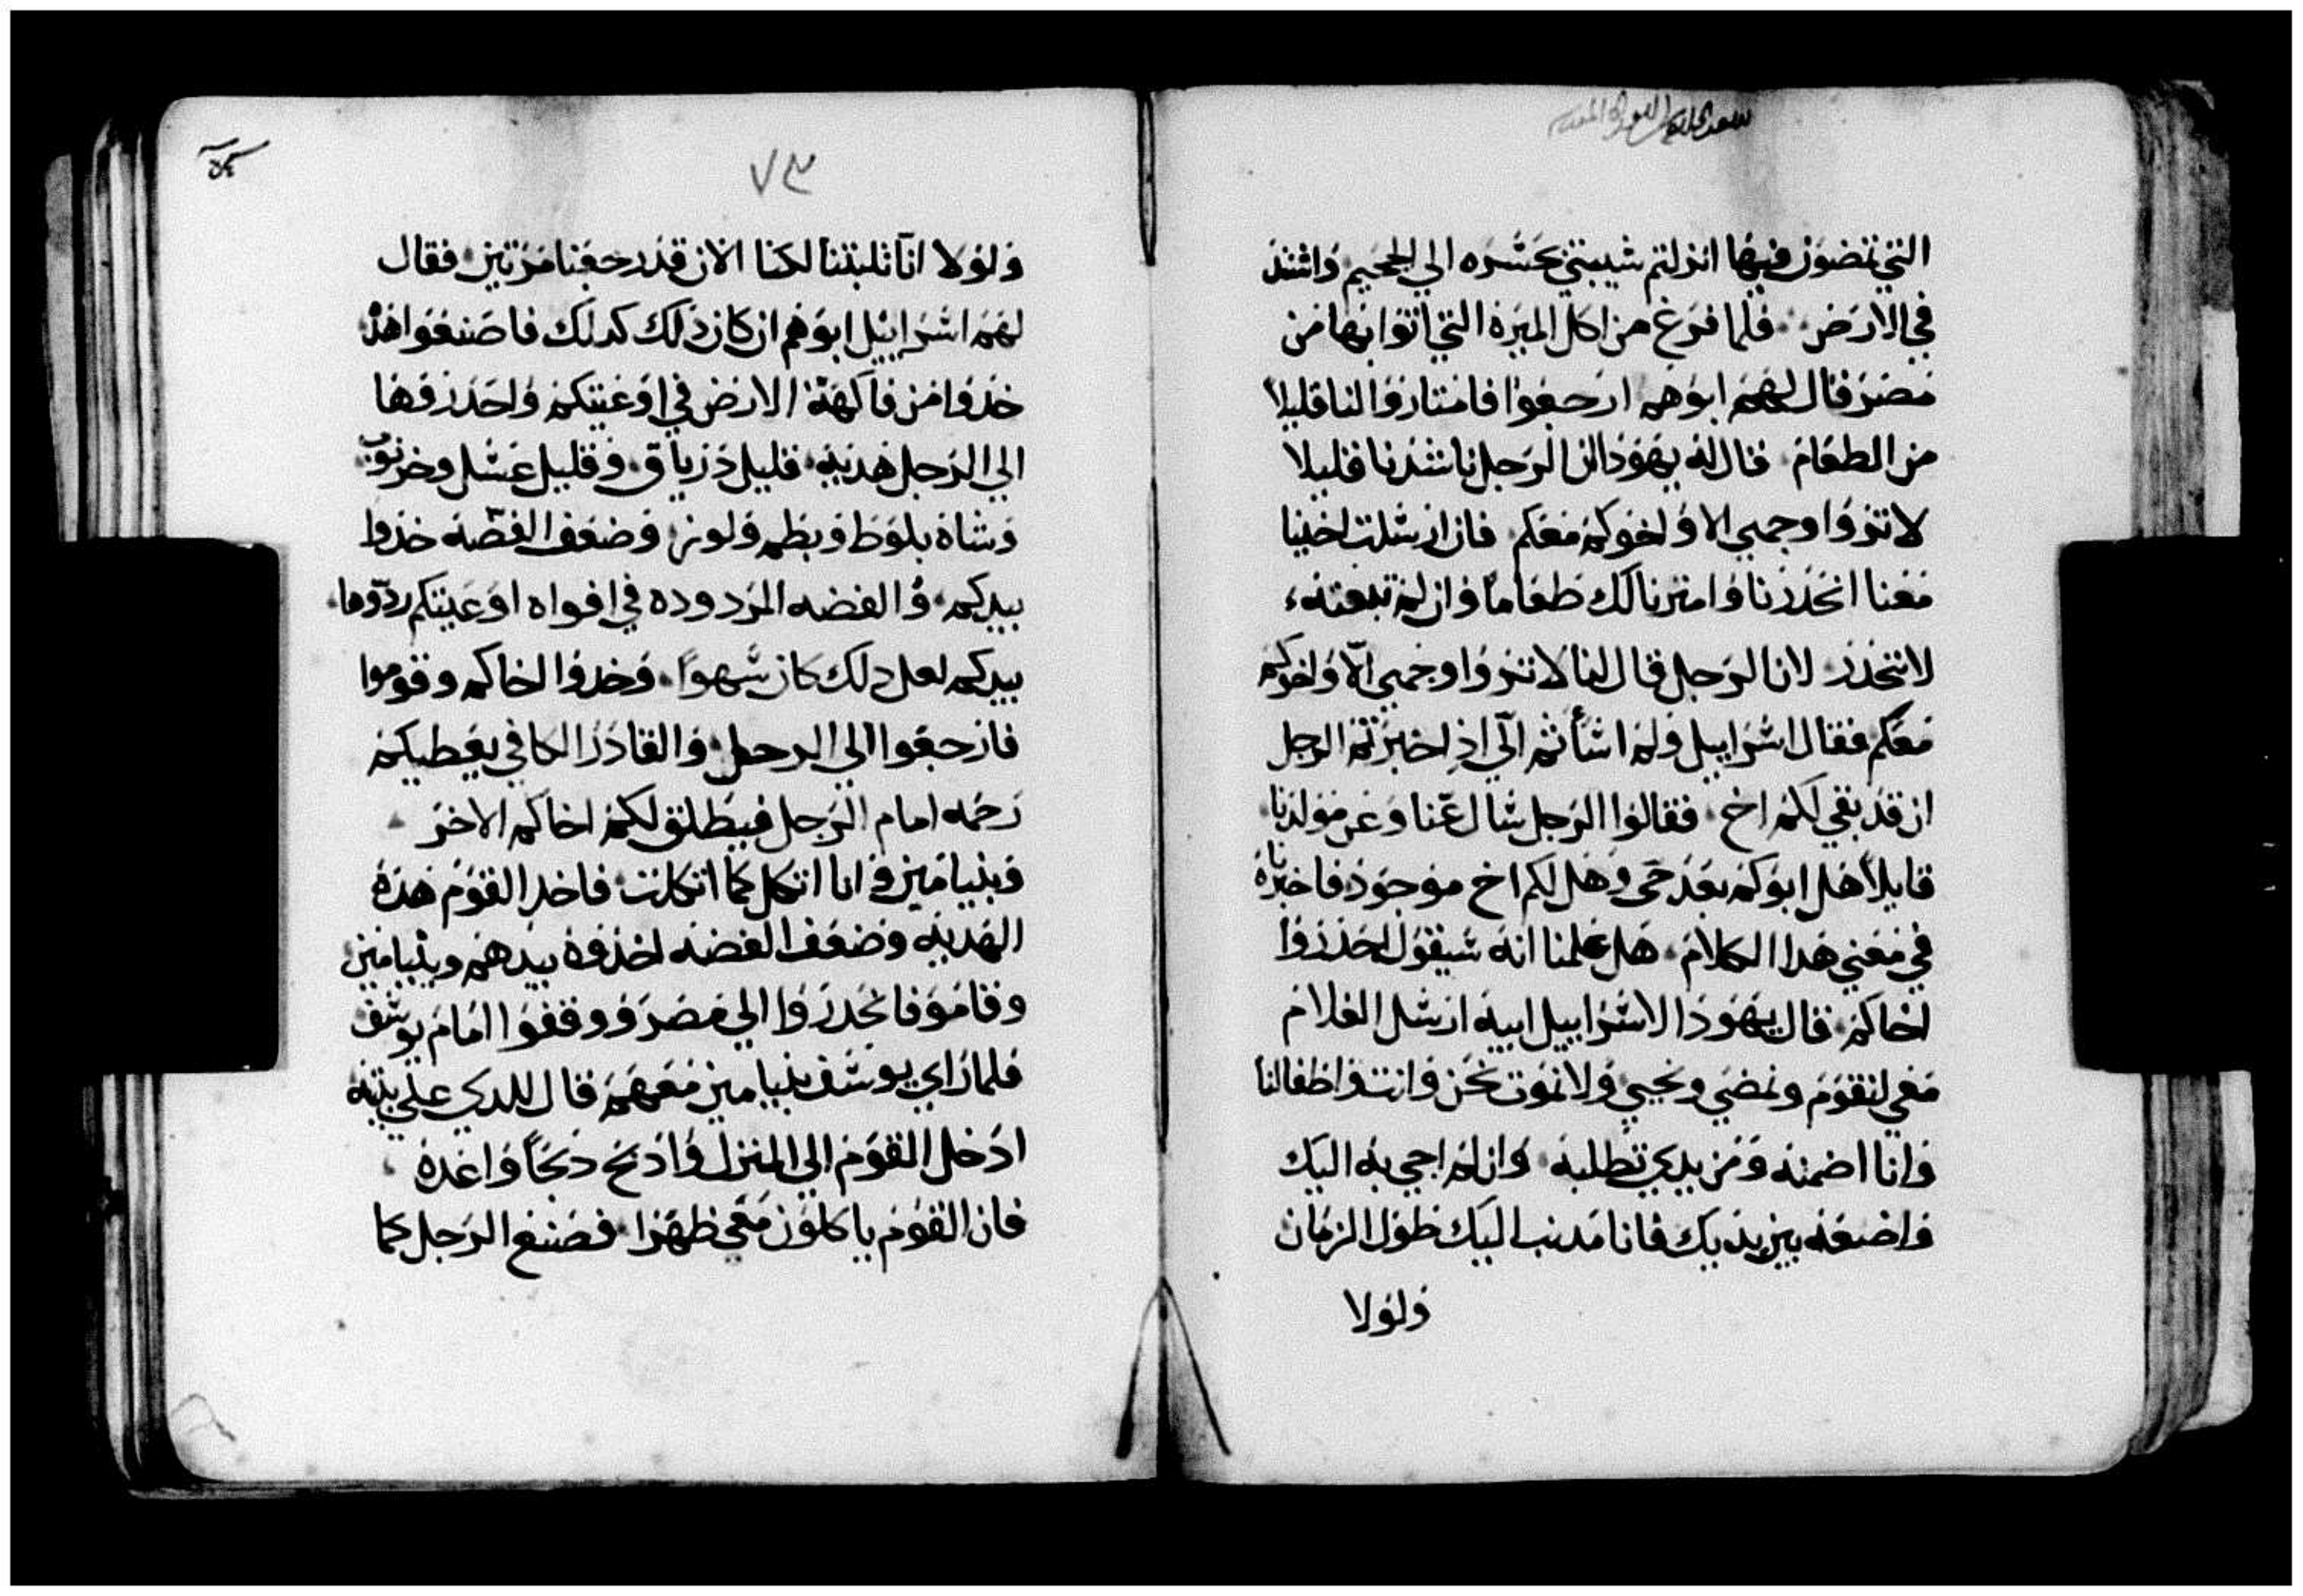 التي تمضون فيها انزلتم شيبتي بحسره الي الجحيم واشتد
في الارض فلما فرغ من اكل الميرة التي اتوا بها من
مصر قال لهم ابوهم ارجعوا فامتاروا لنا قليلا
من الطعام قال له يهودا ان الرجل ناشدنا قليلا
لا تروا وجهي الا واخوكم معكم فان ارسلت اخينا
معنا انحدرنا وامترنا لك طعاماً وان لم تبعته
لا ننحدر لان الرجل قال لنا لا تروا وجهي الّا واخوكم
معكم فقال اسراييل ولم اسأتم الّي اذ اخبرتم الرجل
ان قد بقي لكم اخ فقالوا الرجل سال عّنا وعن مولدنا
قايلاً هل ابوكم بعد حي وهل لكم اخ موجود فاخبرناه
في معني هدا الكلام هل علمنا انه سيقول احدروا
اخاكم قال يهودا لاسراييل ابيه ارسل الغلام
معي لنقوم ونمضي ونحيي ولا نموت نحن وانت واطفالنا
وانا اضمنه ومن يدي تطلبه وان لم اجي به اليك
واضعه بين يديك فانا مدنب اليك طول الزمان
ولولا
٧٣
ولولا انّا تلبتنا لكنا الان قد رجعنا مرتين فقال
لهم اسراييل ابوهم ان كان ذلك كدلك فاصنعوا هذ
خدوا من فاكهة الارض في اوعيتكم واحدروها
الي الرجل هديه قليل درياق وقليل عسل وخرنوب
وشاه بلوط وبطم ولوز وضعف الفضّه خدوا
بيدكم والفضه المردوده في افواه اوعيتكم ردّوها
بيدكم لعل دلك كان سهواً وخدوا اخاكم وقوموا
فارجعوا الي الرجل والقادر الكافي يعطيكم
رحمه امام الرجل فيطلق لكم اخاكم الاخر
وبنيامين وانا اتكل كما اتكلت فاخد القوم هده
الهديه وضعف الفضه اخذوه بيدهم وبنيامين
وقامو فانحدروا الي مصر ووقفوا امام يوسف
فلما راي يوسف بنيامين معهم قال للدي علي بيته
ادخل القوم الي المنزل وادبح دبحاً واعده
فان القوم ياكلون معي ظهرا فصنع الرجل كما